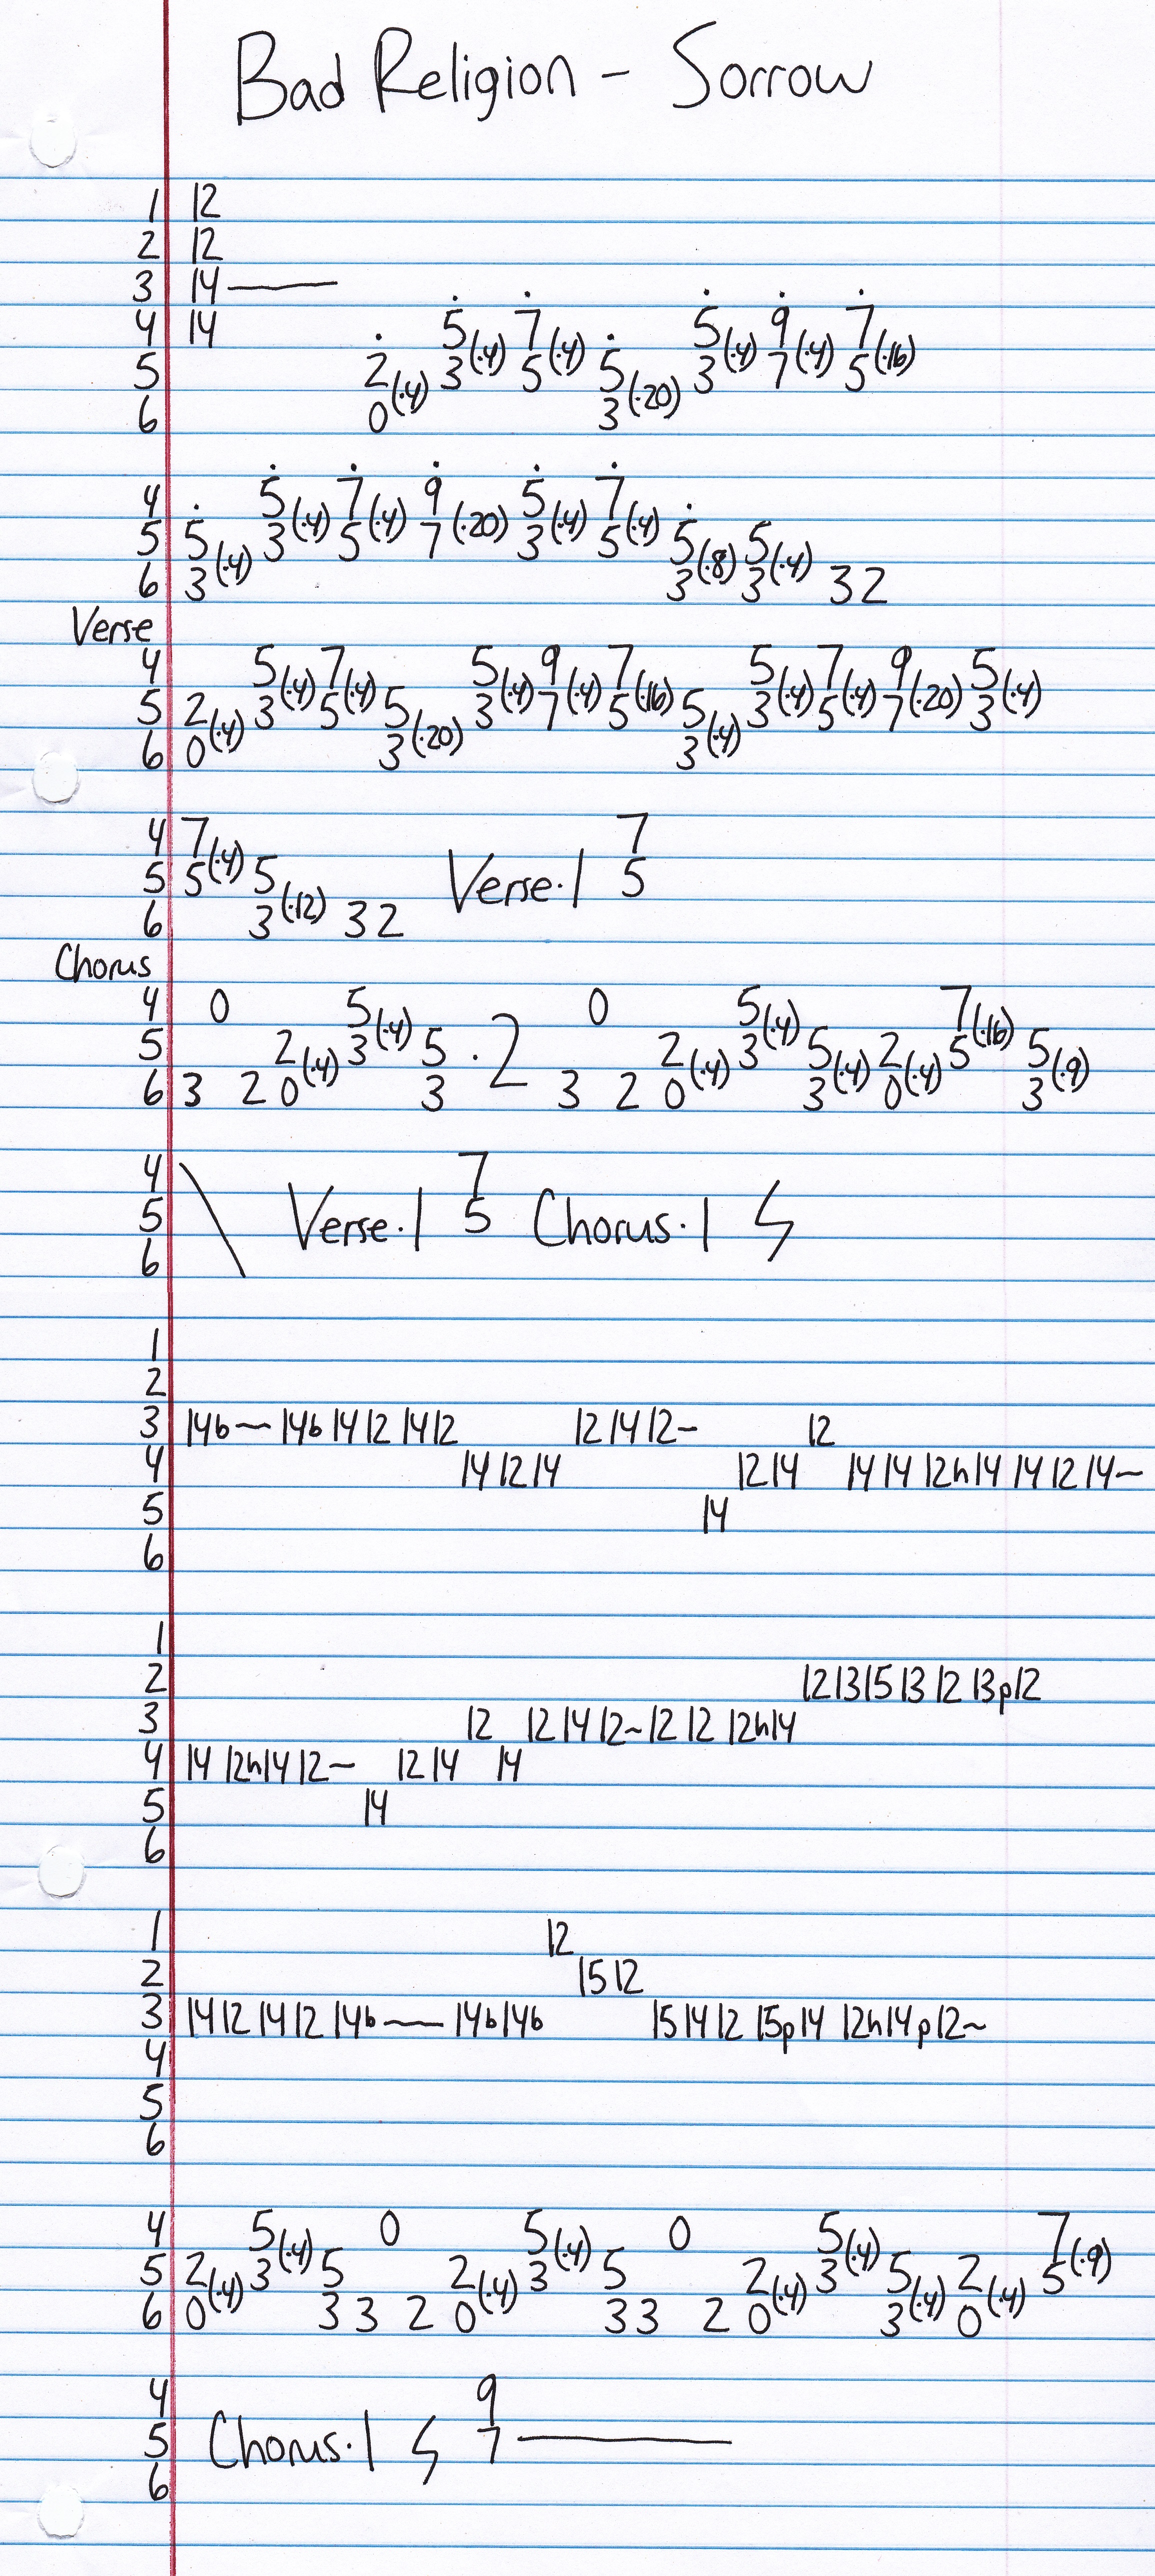 Bad Religion - Sorrow
1 12
2 12
3 14——
4 14 5(·4) 7(·4) 5(·4) 9(·4) 7(·16)
5 2(·4) 3 5 5(·20) 3 7 5
6 0 3
4 5(·4) 7(·4) 9(·20) 5(·4) 7(·4)
5 5(·4) 3 5 7 3 5 5(·8) 5(·4)
6 3 3 3 32
Verse
4 5(·4) 7(·4) 5(·4) 9(·4) 7(·16) 5(·4) 7(·4) 9(·20) 5(·4)
5 2(·4) 3 5 5(·20) 3 7 5 5(·4) 3 5 7 3
6 0 3 3
4 7(·4) 7
5 5 5(·12) Verse·1 5
6 3 32
Chorus
4 0 5(·4) 0 5(·4) 7(·16)
5 2(·4) 3 5 ·2 2(·4) 3 5(·4) 2(·4) 5 5(·9)
6 3 2 0 3 3 2 0 3 0 3
4 \ 7
5 Verse·1 5 Chorus·1 ϟ
6
1
2
3 14b— 14b 14 12 14 12 12 14 12~ 12
4 14 12 14 12 14 14 14 12h14 14 12 14~
5 14
6
1
2 12 13 15 13 12 13p12
3 12 12 14 12~ 12 12 12h14
4 14 12h14 12~ 12 14 14
5 14
6
1 12
2 15 12
3 14 12 14 12 14b—— 14b 14b 15 14 12 15p14 12h14p12~
4
5
6
4 5(·4) 0 5(·4) 0 5(·4) 7(·9)
5 2(·4) 3 5 2(·4) 3 5 2(·4) 3 5(·4) 2(·4) 5
6 0 3 3 2 0 3 3 2 0 3 0
4 9
5 Chorus·1 ϟ 7————
6